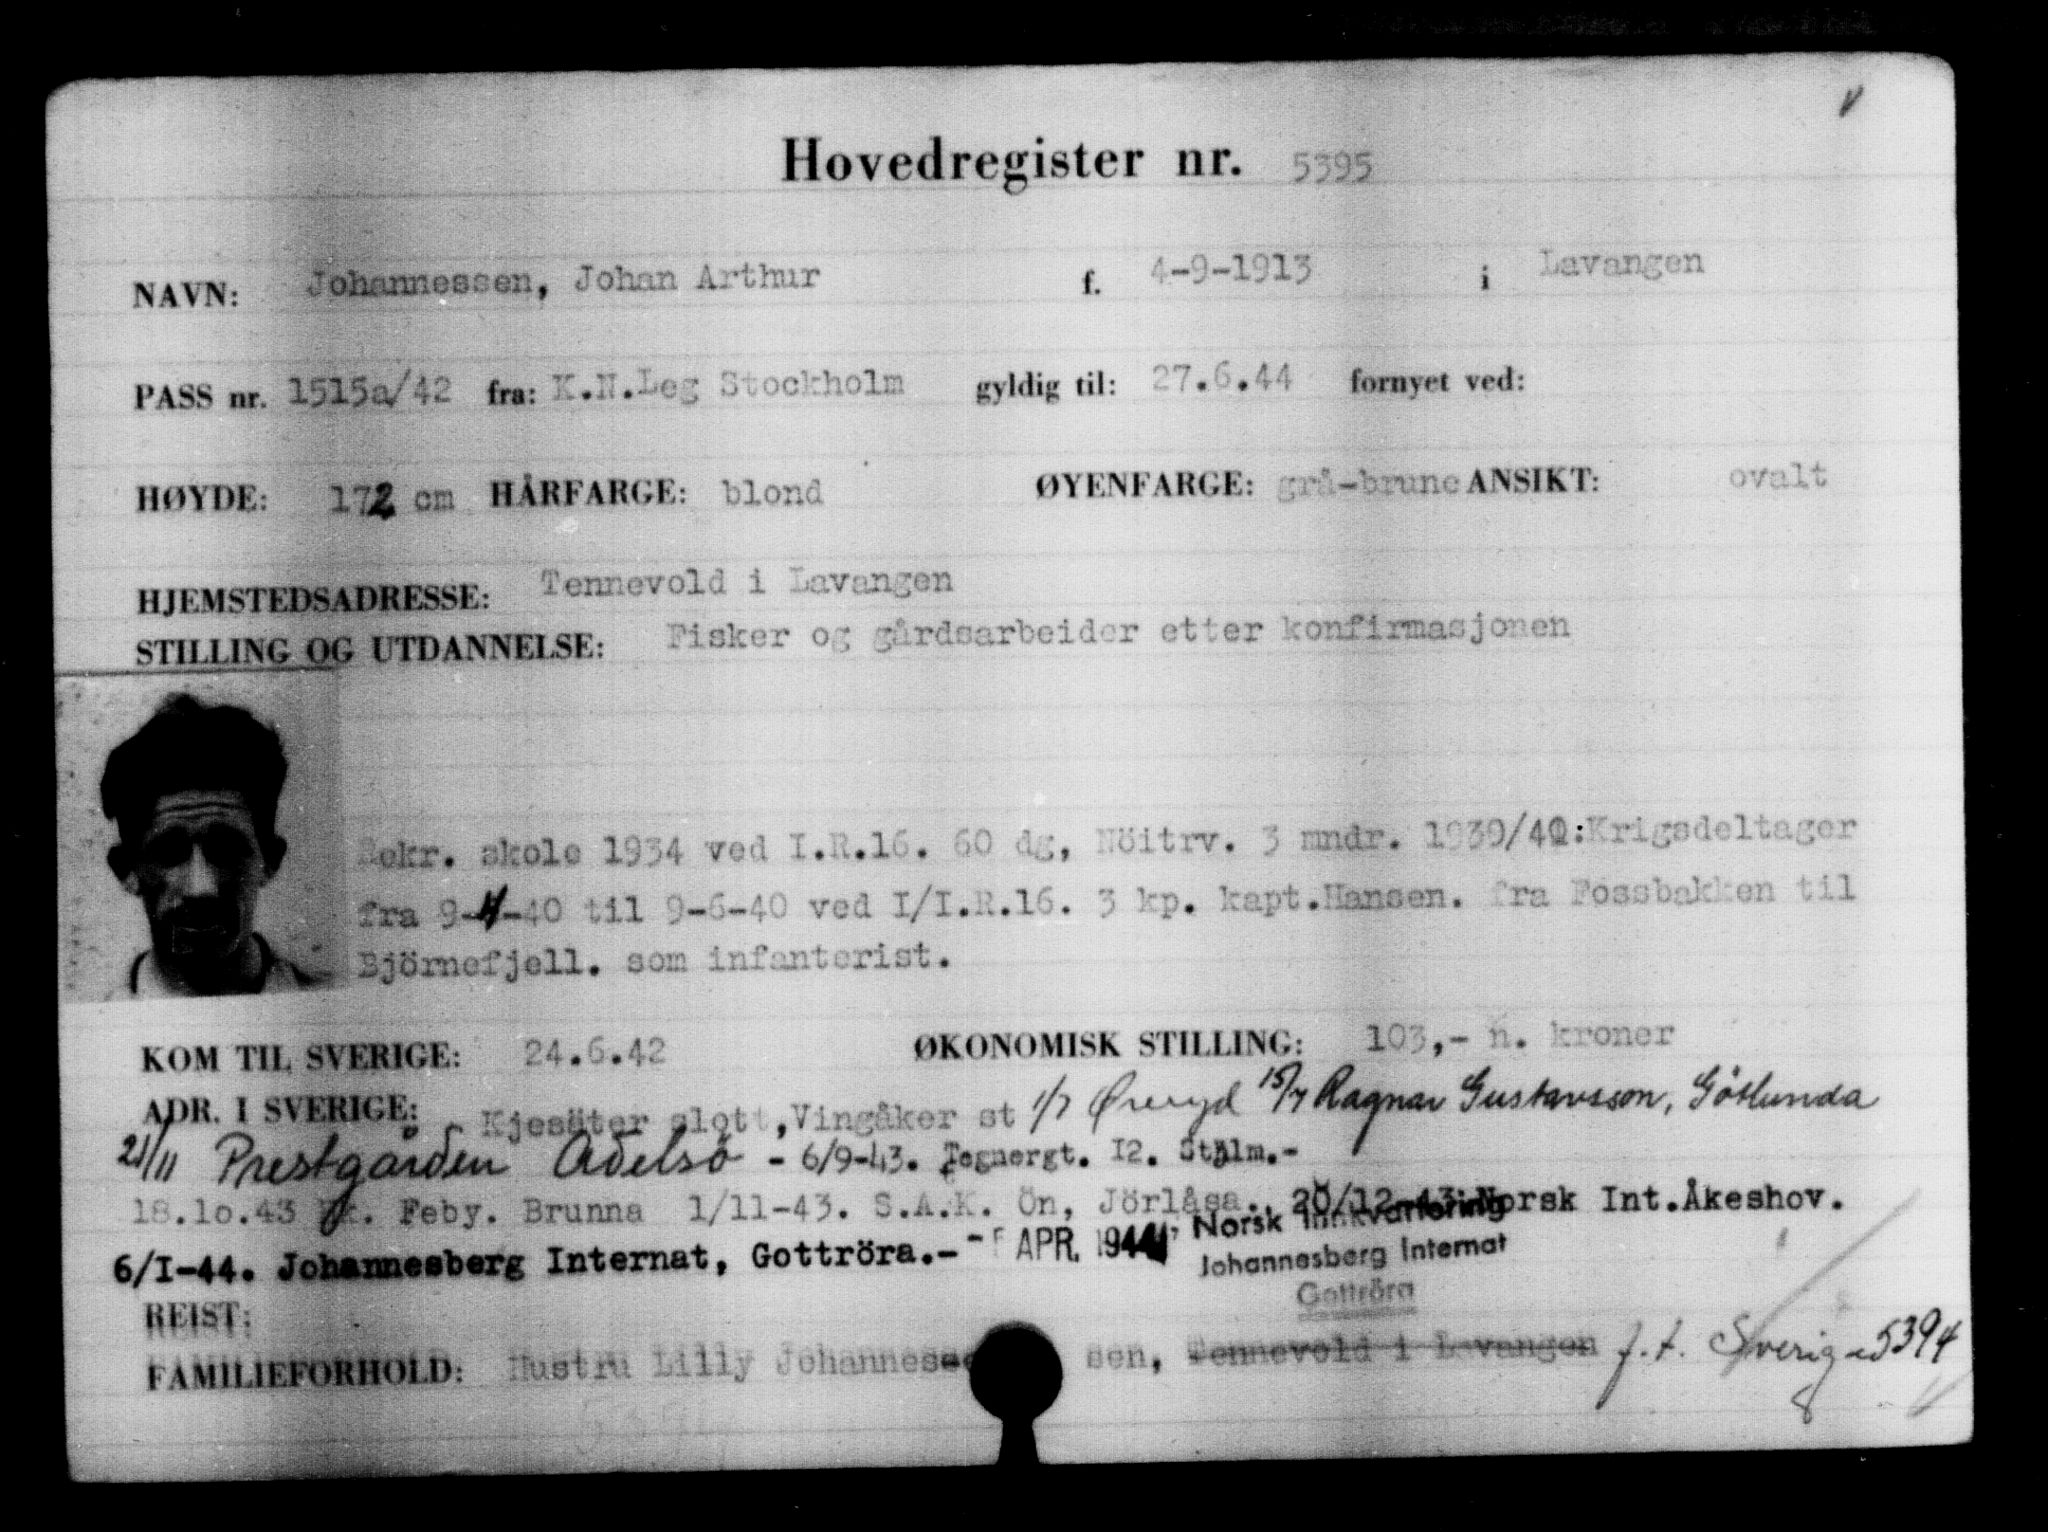 Hovedregister nr. 5395
NAVN: Johannessen, Johan Arthur f. 4-9-1913 i Lavangen
PASS nr. 1515a/42 fra: K.N.Leg Stockholm gyldig til: 27.6.44 fornyet ved:
HØYDE: 172 cm HÅRFARGE: blond ØYENFARGE: grå-brune ANSIKT: ovalt
HJEMSTEDSADRESSE: Tennevold i Lavangen
STILLING OG UTDANNELSE: Fisker og gårdsarbeider etter konfirmasjonen
Rekr. skole 1934 ved I.R.16. 60 dg, Nöitrv. 3 mndr. 1939/40:Krigsdeltager
fra 9-4-40 til 9-6-40 ved I/I.R.16. 3 kp. kapt.Hansen. fra Fossbakken til
Björnefjell. som infanterist.
KOM TIL SVERIGE: 24.6.42 ØKONOMISK STILLING: 103,- n. kroner
ADR. I SVERIGE: Kjesäter slott,Vingåker st 1/7 Øreryd 15/7 Ragnar Gustavsson, Götlunda
21/11 Prestgården Adelsö - 6/9-43. Tegnergt. 12. Sthlm.-
18.10.43 Feby. Brunna 1/11-43. S.A.K. Ön, Jörlåsa., 20/12-43.Norsk Int.Åkeshov.
6/I-44. Johannesberg Internat, Gottröra.- APR. 1944 Norsk Innkvartering
Johannesberg Internat
Gottröra
REIST:
FAMILIEFORHOLD: Hustru Lilly Johannessen, Tennevold i Lavangen f.t. Sverige 5394
8
5394